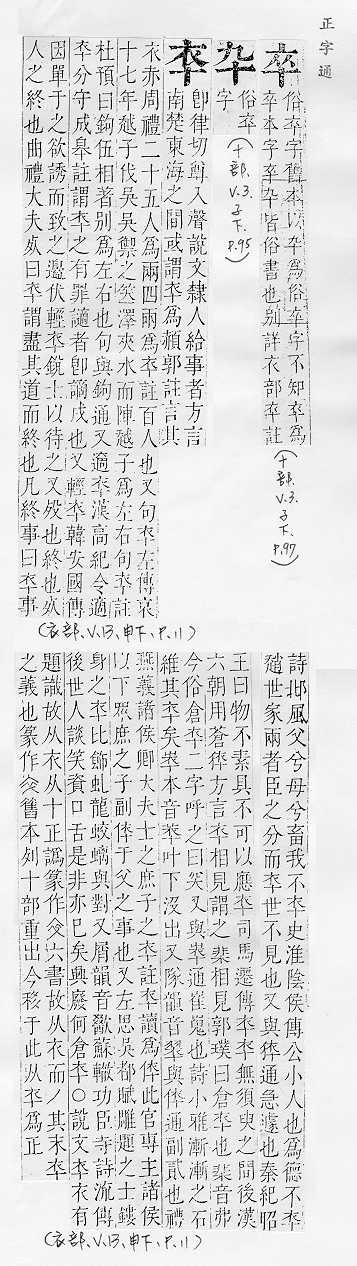 正字通
卒
俗卒字舊本以卒為俗卒字不知卒為
卒本字卒卆皆俗書也別詳衣部卒註
(十部、V.3、子下、P.97)
卆
俗卒
字
(十部、V.3、子下、P.95)
卒
即律切尊入聲說文隸人給事者方言
南楚東海之間或謂卒為郭註言其
衣赤周禮二十五人為兩四兩為卒註百人也又句卒左傳哀
十七年越子伐吳吳禦之笠澤夾水而陣越子為左右句卒註
杜預曰鉤伍相著別為左右也句與鉤通又適卒漢高紀令適
卒分守成皋註謂卒之有罪讁者即謫戍也又輕卒韓安國傳
因單于之欲誘而致之邊伏輕卒銳士以待之又歿也終也
人之終也曲禮大夫死曰卒謂盡其道而終也凡終事曰卒事
(衣部、V.13、申下、P.11)
詩邶風父兮母兮畜我不卒史淮陰侯傳公小人也為德不卒
趙世家兩者臣之分而卒世不見也又與猝通急遽也秦紀昭
王曰物不素具不可以應卒司馬遷傳卒卒無須臾之間後漢
六朝用蒼猝方言卒相見謂之棐相見郭璞曰倉卒也棐音弗
今俗倉卒二字呼之曰突又與崒通崔嵬也詩小雅漸漸之石
維其卒矣崒本音叶下沒出又隊韻音翠與倅通副貳也禮
燕義諸侯卿大夫士之庶子之卒註卒讀為倅此官專主諸侯
以下眾庶之子副倅于父之事也又左思吳都賦雕題之士鏤
身之卒比飾虬龍蛟螭與對又屑韻音歠蘇轍功臣寺詩流傳
後世人談笑資口舌是非亦已矣興廢何倉卒○說文卒衣有
題識故从衣从十正譌篆作六書故从衣而丿其末卒
之義也篆作舊本列十部重出今移于此从卒為正
(衣部、V.13、申下、P.11)